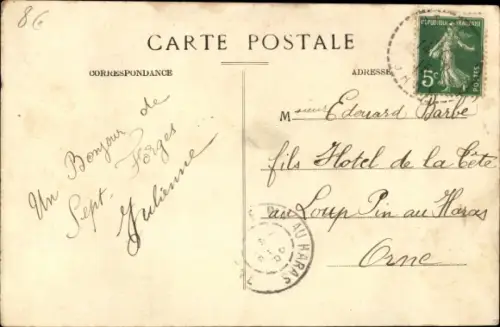 8€
CARTE POSTALE
CORRESPONDANCE
ADRESSE
REPUBLIQUE FRANCAISE
5c
POSTES
Un Bonjour de
Sept-Forges
Julienne
Monsieur Edouard Barbé
fils Hotel de la Tête
au Loup Pin au Haras
Orne
AU HARAS